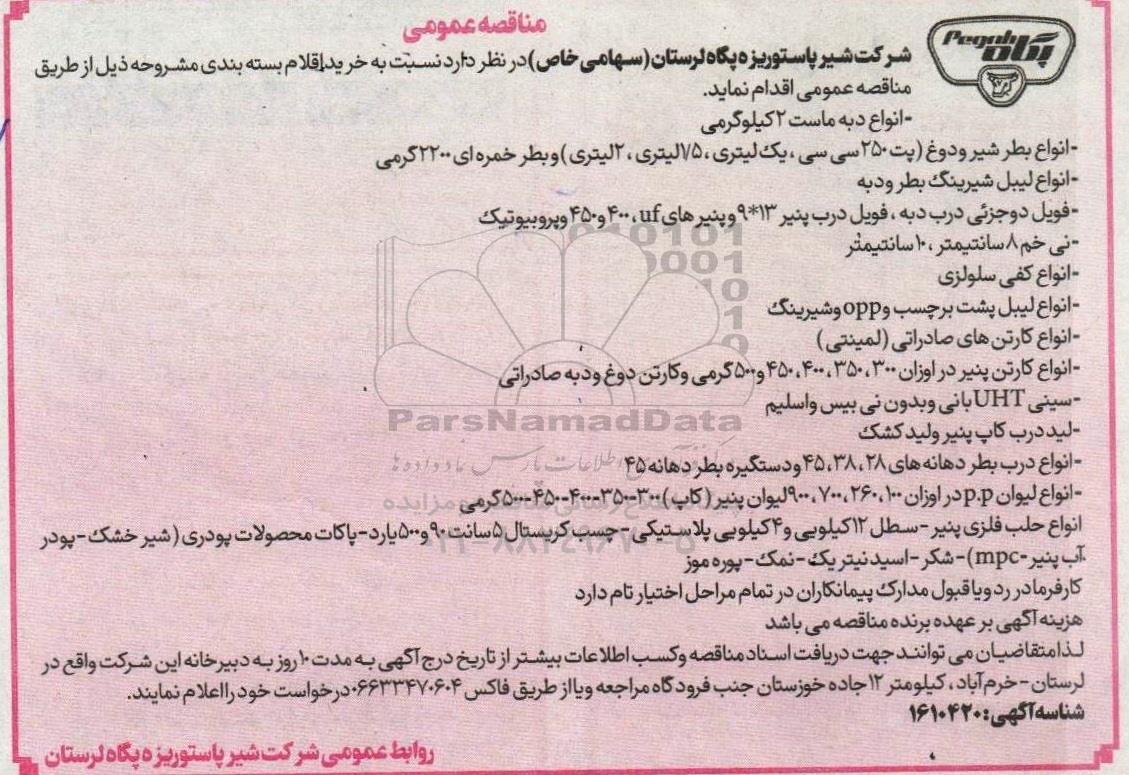 مناقصه عمومی
Pegah
پگاه
شرکت شیر پاستوریزه پگاه لرستان (سهامی خاص) در نظر دارد نسبت به خرید اقلام بسته بندی مشروحه ذیل از طریق
مناقصه عمومی اقدام نماید.
-انواع دبه ماست ۲ کیلوگرمی
-انواع بطر شیر ودوغ (پت ۲۵۰ سی سی ، یک لیتری ، ۱/۷۵ لیتری ، ۲ لیتری ) و بطر خمره ای ۲۲۰۰ گرمی
-انواع لیبل شیرینگ بطر ودبه
-فویل دوجزئی درب دبه ، فویل درب پنیر ۱۳*۹ و پنیر های uf ، ۴۰۰ و ۴۵۰ و پروبیوتیک
-نی خم ۸ سانتیمتر ، ۱۰ سانتیمتر
-انواع کفی سلولزی
-انواع لیبل پشت برچسب و opp و شیرینگ
-انواع کارتن های صادراتی (لمینتی )
-انواع کارتن پنیر در اوزان ۳۰۰ ، ۳۵۰ ، ۴۰۰ ، ۴۵۰ و ۵۰۰ گرمی وکارتن دوغ ودبه صادراتی
-سینی UHT بانی وبدون نی بیس واسلیم
-لید درب کاپ پنیر ولید کشک
-انواع درب بطر دهانه های ۲۸ ، ۳۸ ، ۴۵ و دستگیره بطر دهانه ۴۵
-انواع لیوان p.p در اوزان ۱۰۰ ، ۲۶۰ ، ۷۰۰ ، ۹۰۰ لیوان پنیر (کاپ ) ۳۰۰-۳۵۰-۴۰۰-۴۵۰-۵۰۰ گرمی
انواع حلب فلزی پنیر - سطل ۱۲ کیلویی و ۴ کیلویی پلاستیکی - چسب کریستال ۵ سانت ۹۰ و ۵۰۰ یارد - پاکات محصولات پودری (شیر خشک - پودر
آب پنیر -mpc) - شکر - اسید نیتریک - نمک - پوره موز
کارفرما در رد ویا قبول مدارک پیمانکاران در تمام مراحل اختیار تام دارد
هزینه آگهی بر عهده برنده مناقصه می باشد
لذا متقاضیان می توانند جهت دریافت اسناد مناقصه وکسب اطلاعات بیشتر از تاریخ درج آگهی به مدت ۱۰ روز به دبیرخانه این شرکت واقع در
لرستان - خرم آباد ، کیلومتر ۱۲ جاده خوزستان جنب فرودگاه مراجعه ویا از طریق فاکس ۰۶۶۳۳۴۷۰۶۰۴ درخواست خود را اعلام نمایند.
شناسه آگهی : ۱۶۱۰۴۲۰
روابط عمومی شرکت شیر پاستوریزه پگاه لرستان
ParsNamadData